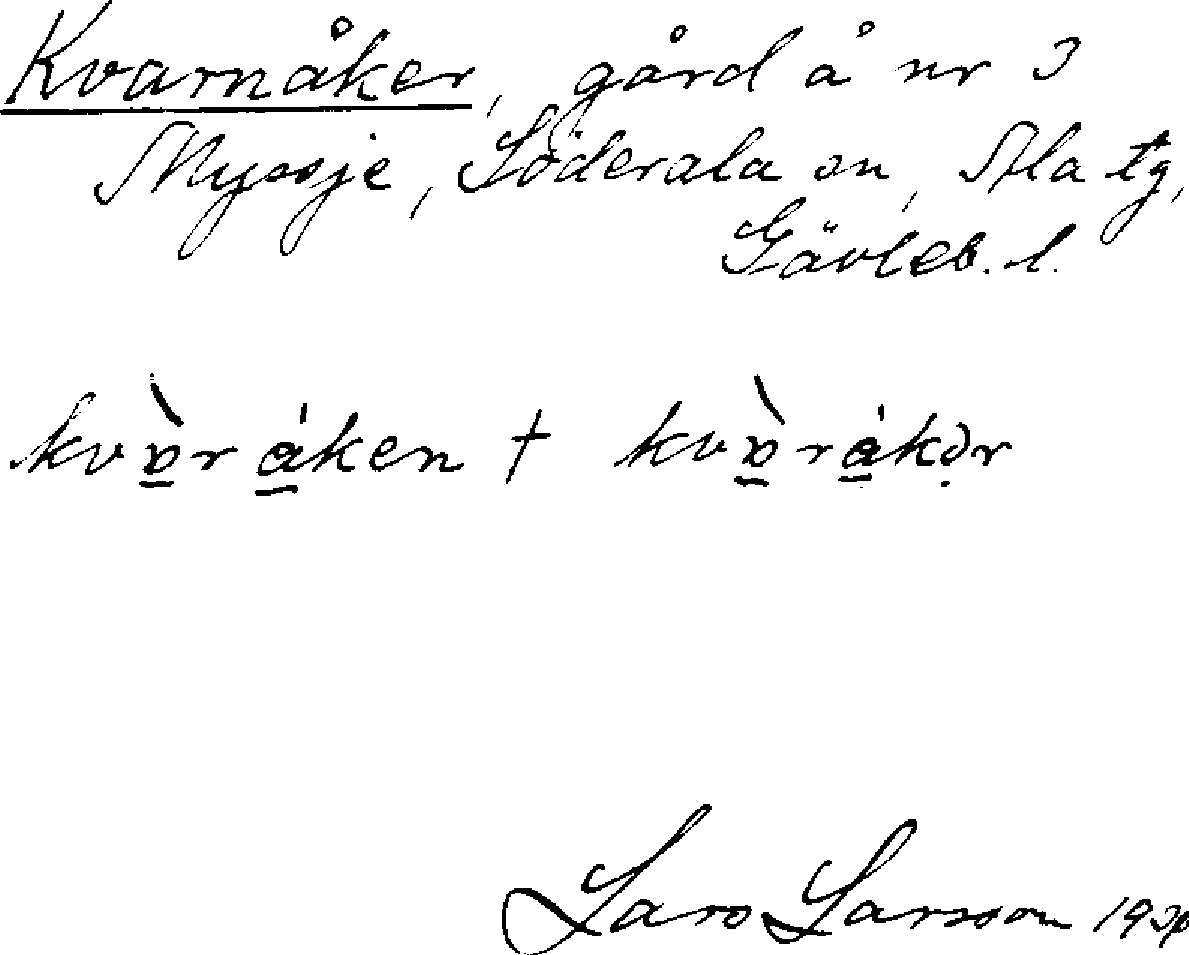 Kvarnåker, gård å nr 3
Myssje, Söderala sn, Ala tg,
Gävleb. l.
kvɒ̠̀r å̠ken † kvɒ̠̀rå̠kər
Lars Larsson